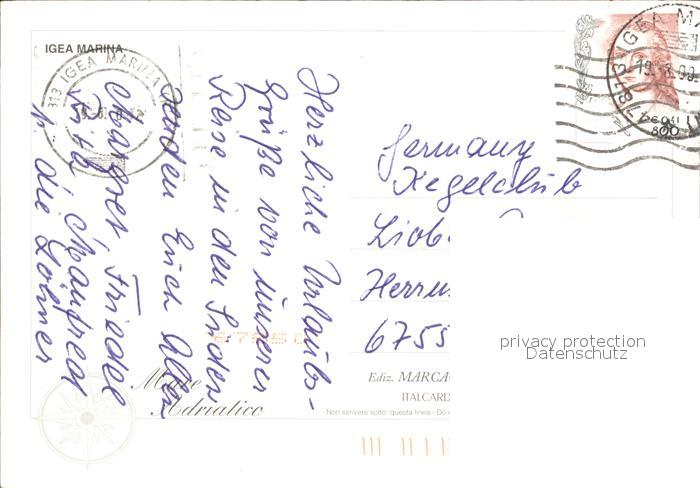 IGEA MARINA
Herzliche Urlaubs-
Grüße von unserer
Reise in den Süden
senden Euch Allen
Margret, Friedel
Rita, Manfred
u. die Löhner
Germany
Kegelclub
Liob
Herrn
6755
IGEA MARINA
800
Mare
Adriatico
Ediz. MARCA
ITALCARD
Non scrivere sotto questa linea - Do
privacy protection
Datenschutz